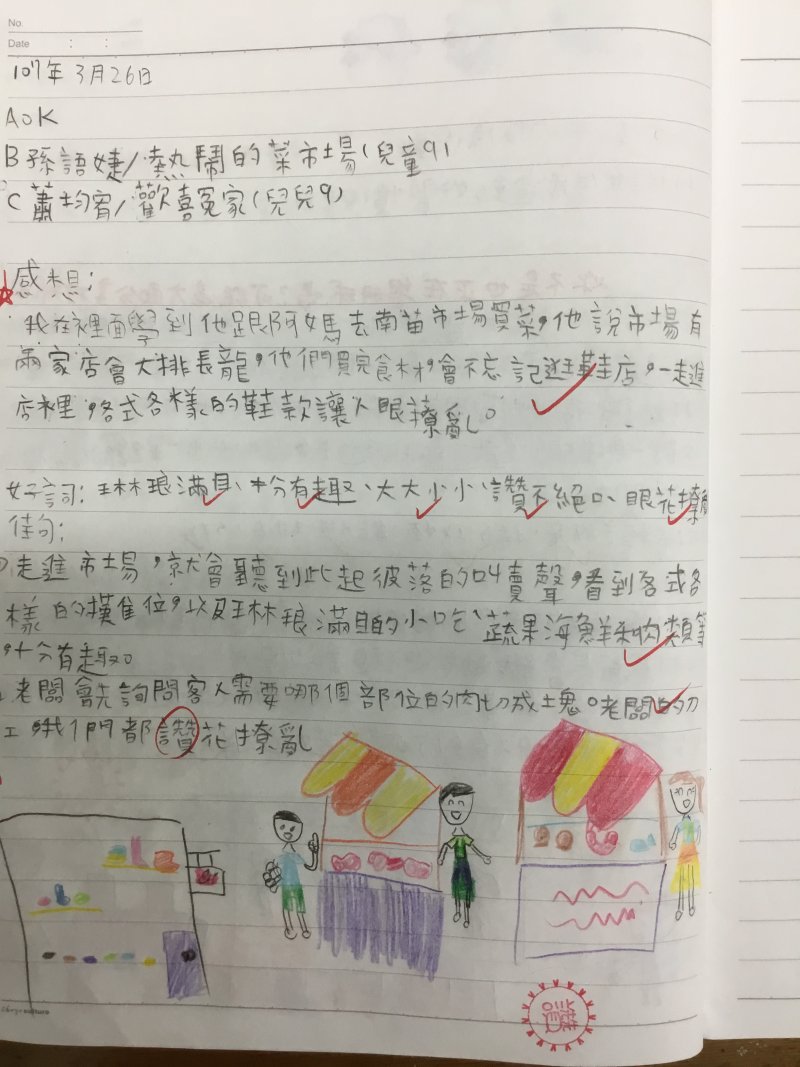 No.
Date : :
107年3月26日
A OK
B 孫語婕/熱鬧的菜市場(兒童9)
C 蕭均宥/歡喜冤家(兒兒9)
感想:
我在裡面學到他跟阿媽去南苗市場買菜,他說市場有
兩家店會大排長龍,他們買完食材,會不忘記逛鞋店,一走進
店裡,各式各樣的鞋款讓人眼撩亂。
好詞:琳琅滿目、十分有趣、大大小小、讚不絕口、眼花撩亂
佳句:
走進市場,就會聽到此起彼落的叫賣聲,看到各式各
樣的攤位,以及琳琅滿目的小吃、蔬果海鮮和肉類等
,十分有趣。
老闆會先詢問客人需要哪個部位的肉切成塊。老闆的刀
工,我們都讚花撩亂
讚